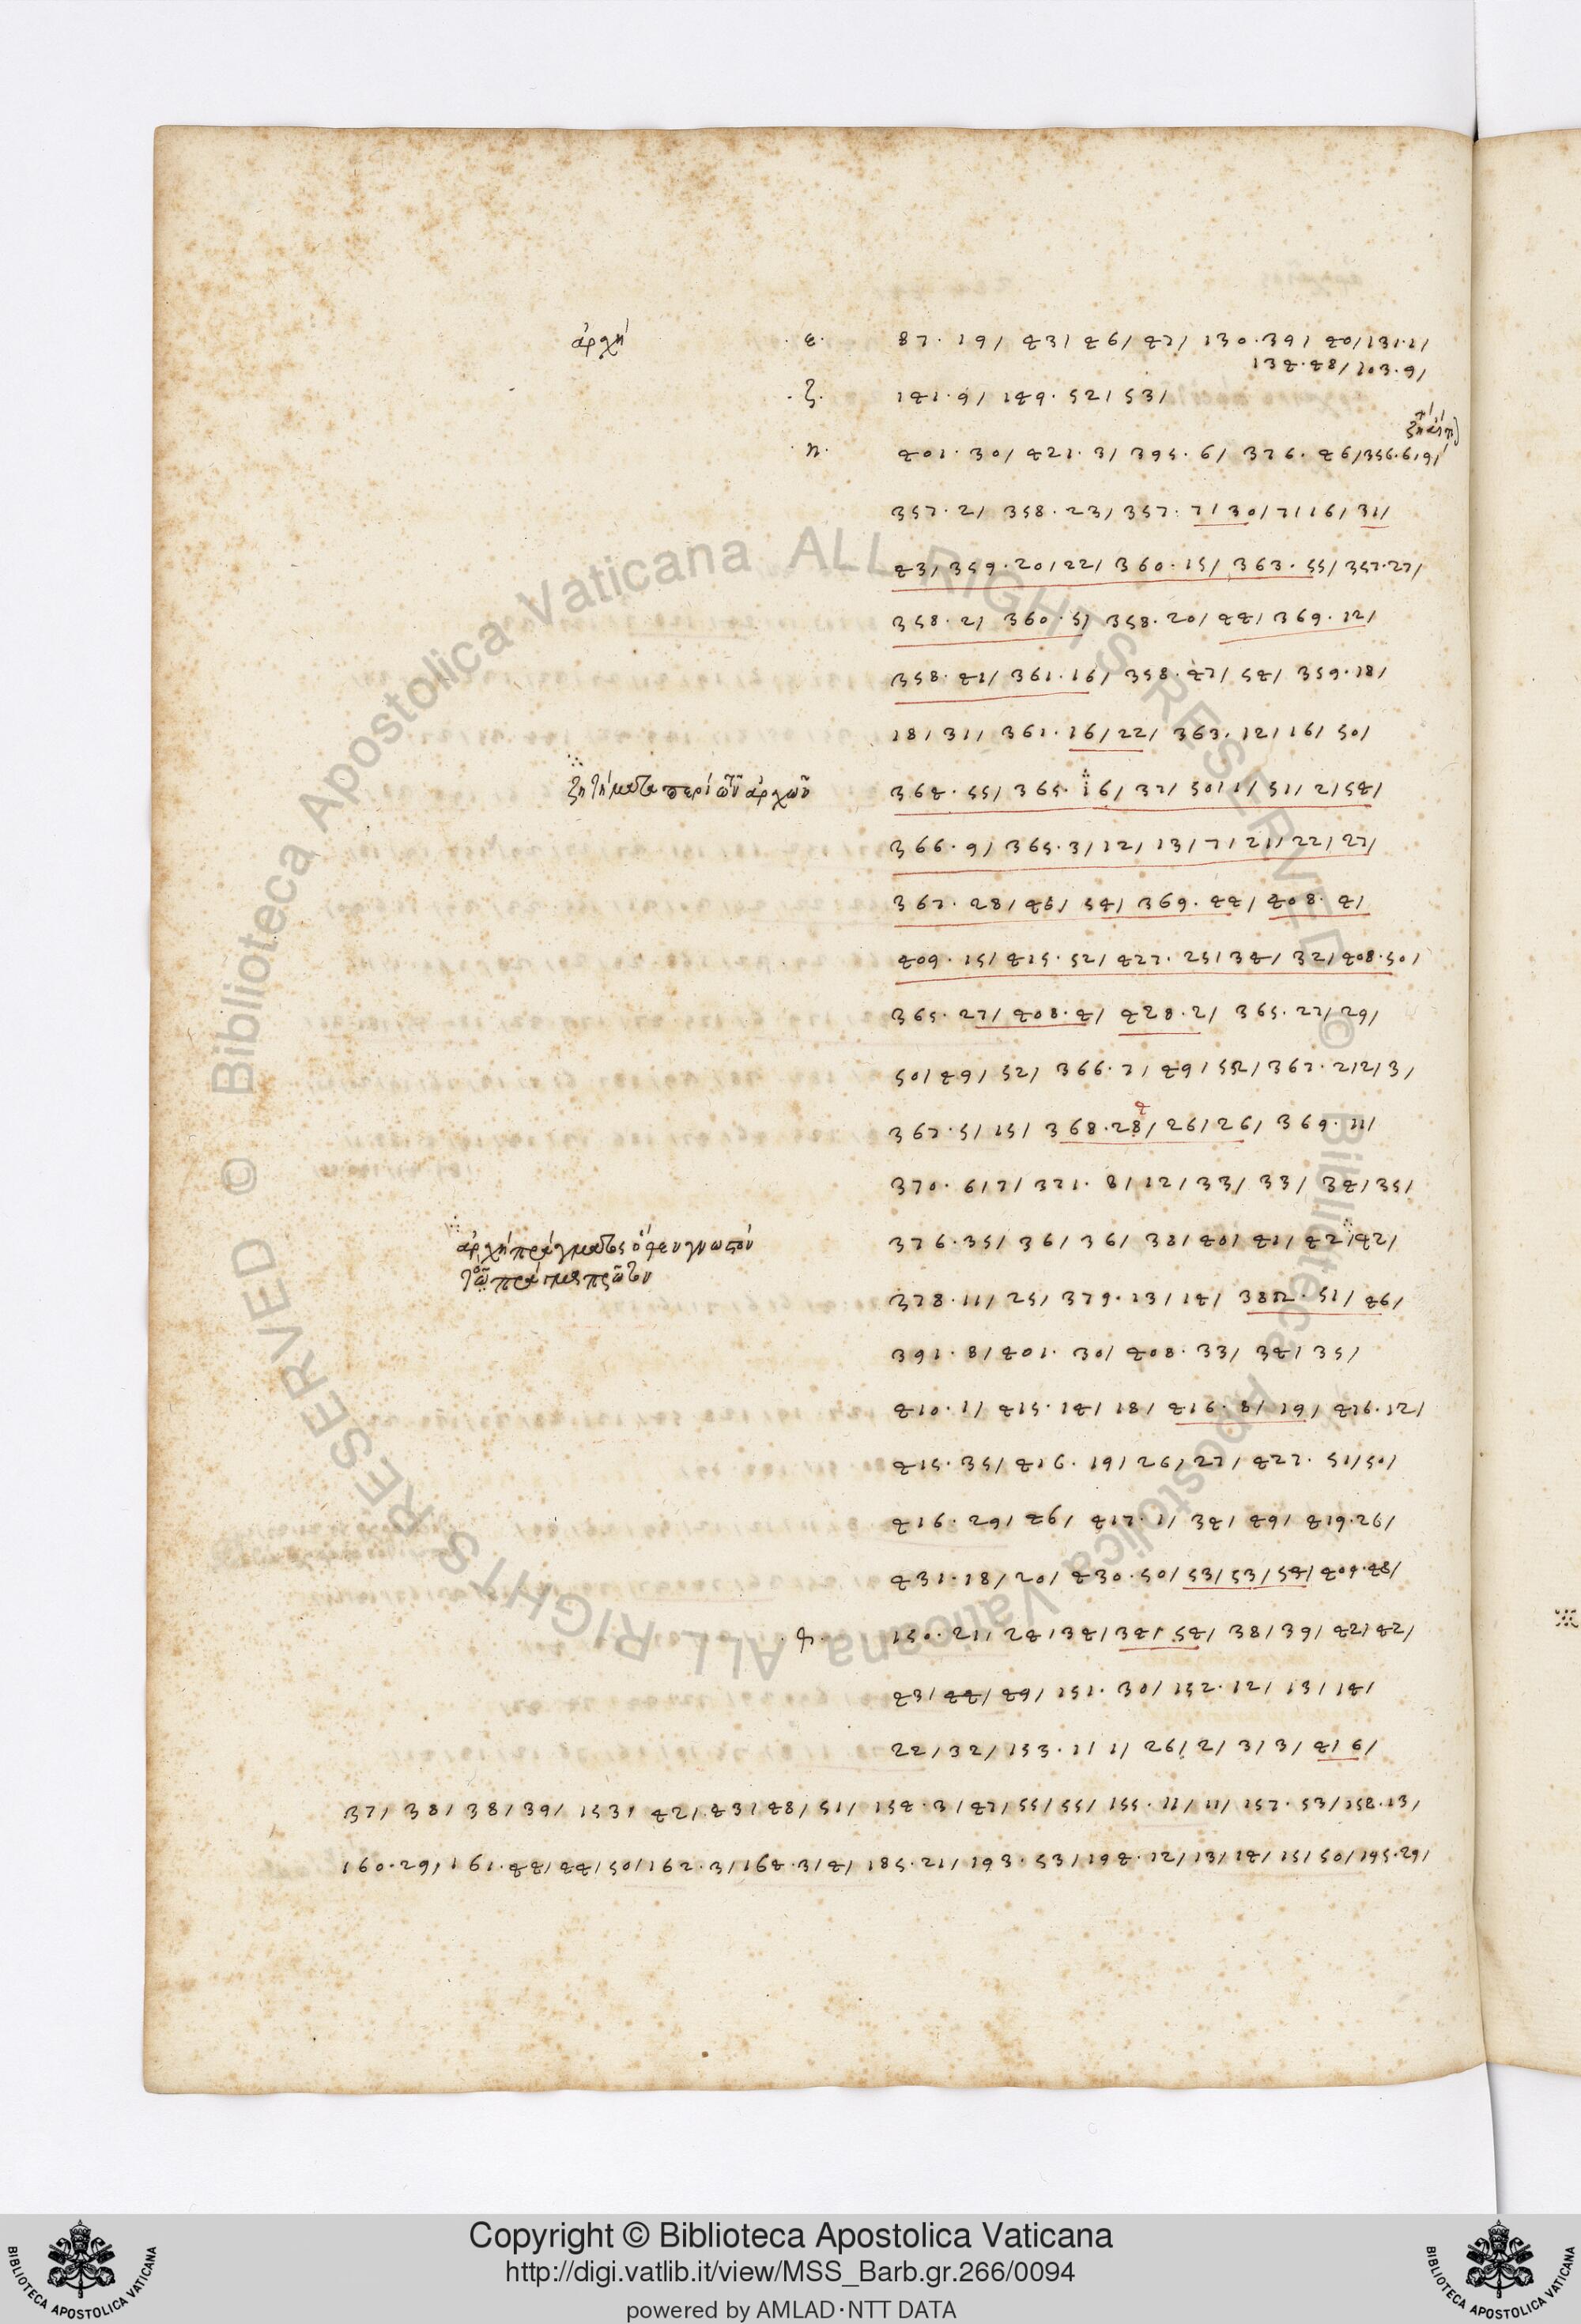 ἀρχή · ε · 87 · 19 / 43 / 46 / 47 / 130 · 39 / 40 / 131 · 1 /
134 · 48 / 103 · 9 /
· ζ · 141 · 9 / 149 · 52 / 53 /
· η · 401 · 30 / 421 · 3 / 395 · 6 / 376 · 46 / 356 · 6 / 9 /
357 · 2 / 358 · 23 / 357 · 7 / 30 / 7 / 16 / 31 /
43 / 359 · 20 / 22 / 360 · 15 / 363 · 55 / 357 · 27 /
358 · 2 / 360 · 5 / 358 · 20 / 44 / 369 · 12 /
358 · 41 / 361 · 16 / 358 · 47 / 54 / 359 · 18 /
18 / 31 / 361 · 16 / 22 / 363 · 12 / 16 / 50 /
ζητήματα περὶ τῶν ἀρχῶν 364 · 55 / 365 · 16 / 37 / 50 / 1 / 51 / 2 / 54 /
366 · 9 / 365 · 3 / 12 / 13 / 7 / 21 / 22 / 27 /
367 · 28 / 46 / 54 / 369 · 44 / 408 · 4 /
409 · 15 / 415 · 52 / 427 · 25 / 34 / 32 / 408 · 50 /
365 · 27 / 408 · 4 / 428 · 2 / 365 · 27 / 29 /
50 / 49 / 52 / 366 · 7 / 49 / 52 / 367 · 2 / 2 / 3 /
4
367 · 5 / 15 / 368 · 28 / 26 / 26 / 369 · 11 /
370 · 6 / 7 / 371 · 8 / 12 / 33 / 33 / 34 / 35 /
ἀρχὴ πράγματος 376 · 35 / 36 / 36 / 38 / 40 / 41 / 42 / 42 /
378 · 11 / 25 / 379 · 13 / 14 / 382 · 51 / 46 /
391 · 8 / 401 · 30 / 408 · 33 / 34 / 35 /
410 · 1 / 415 · 14 / 18 / 416 · 8 / 19 / 416 · 12 /
415 · 35 / 416 · 19 / 26 / 27 / 427 · 51 / 50 /
416 · 29 / 46 / 417 · 1 / 34 / 49 / 419 · 26 /
431 · 18 / 20 / 430 · 50 / 53 / 53 / 54 / 409 · 48 /
150 · 21 / 24 / 34 / 34 / 54 / 38 / 39 / 42 / 42 /
43 / 44 / 49 / 151 · 30 / 152 · 12 / 13 / 14 /
22 / 32 / 153 · 1 / 1 / 26 / 2 / 3 / 3 / 4 / 6 /
37 / 38 / 38 / 39 / 153 / 42 / 43 / 48 / 51 / 154 · 3 / 47 / 55 / 55 / 155 · 11 / 11 / 157 · 53 / 158 · 13 /
160 · 29 / 161 · 44 / 44 / 50 / 162 · 3 / 164 · 3 / 4 / 185 · 21 / 193 · 53 / 194 · 12 / 13 / 14 / 15 / 50 / 195 · 29 /
© Biblioteca Apostolica Vaticana ALL RIGHTS RESERVED © Biblioteca Apostolica Vaticana ALL RIGHTS RESERVED
Copyright © Biblioteca Apostolica Vaticana
http://digi.vatlib.it/view/MSS_Barb.gr.266/0094
powered by AMLAD·NTT DATA
BIBLIOTECA APOSTOLICA VATICANA
BIBLIOTECA APOSTOLICA VATICANA